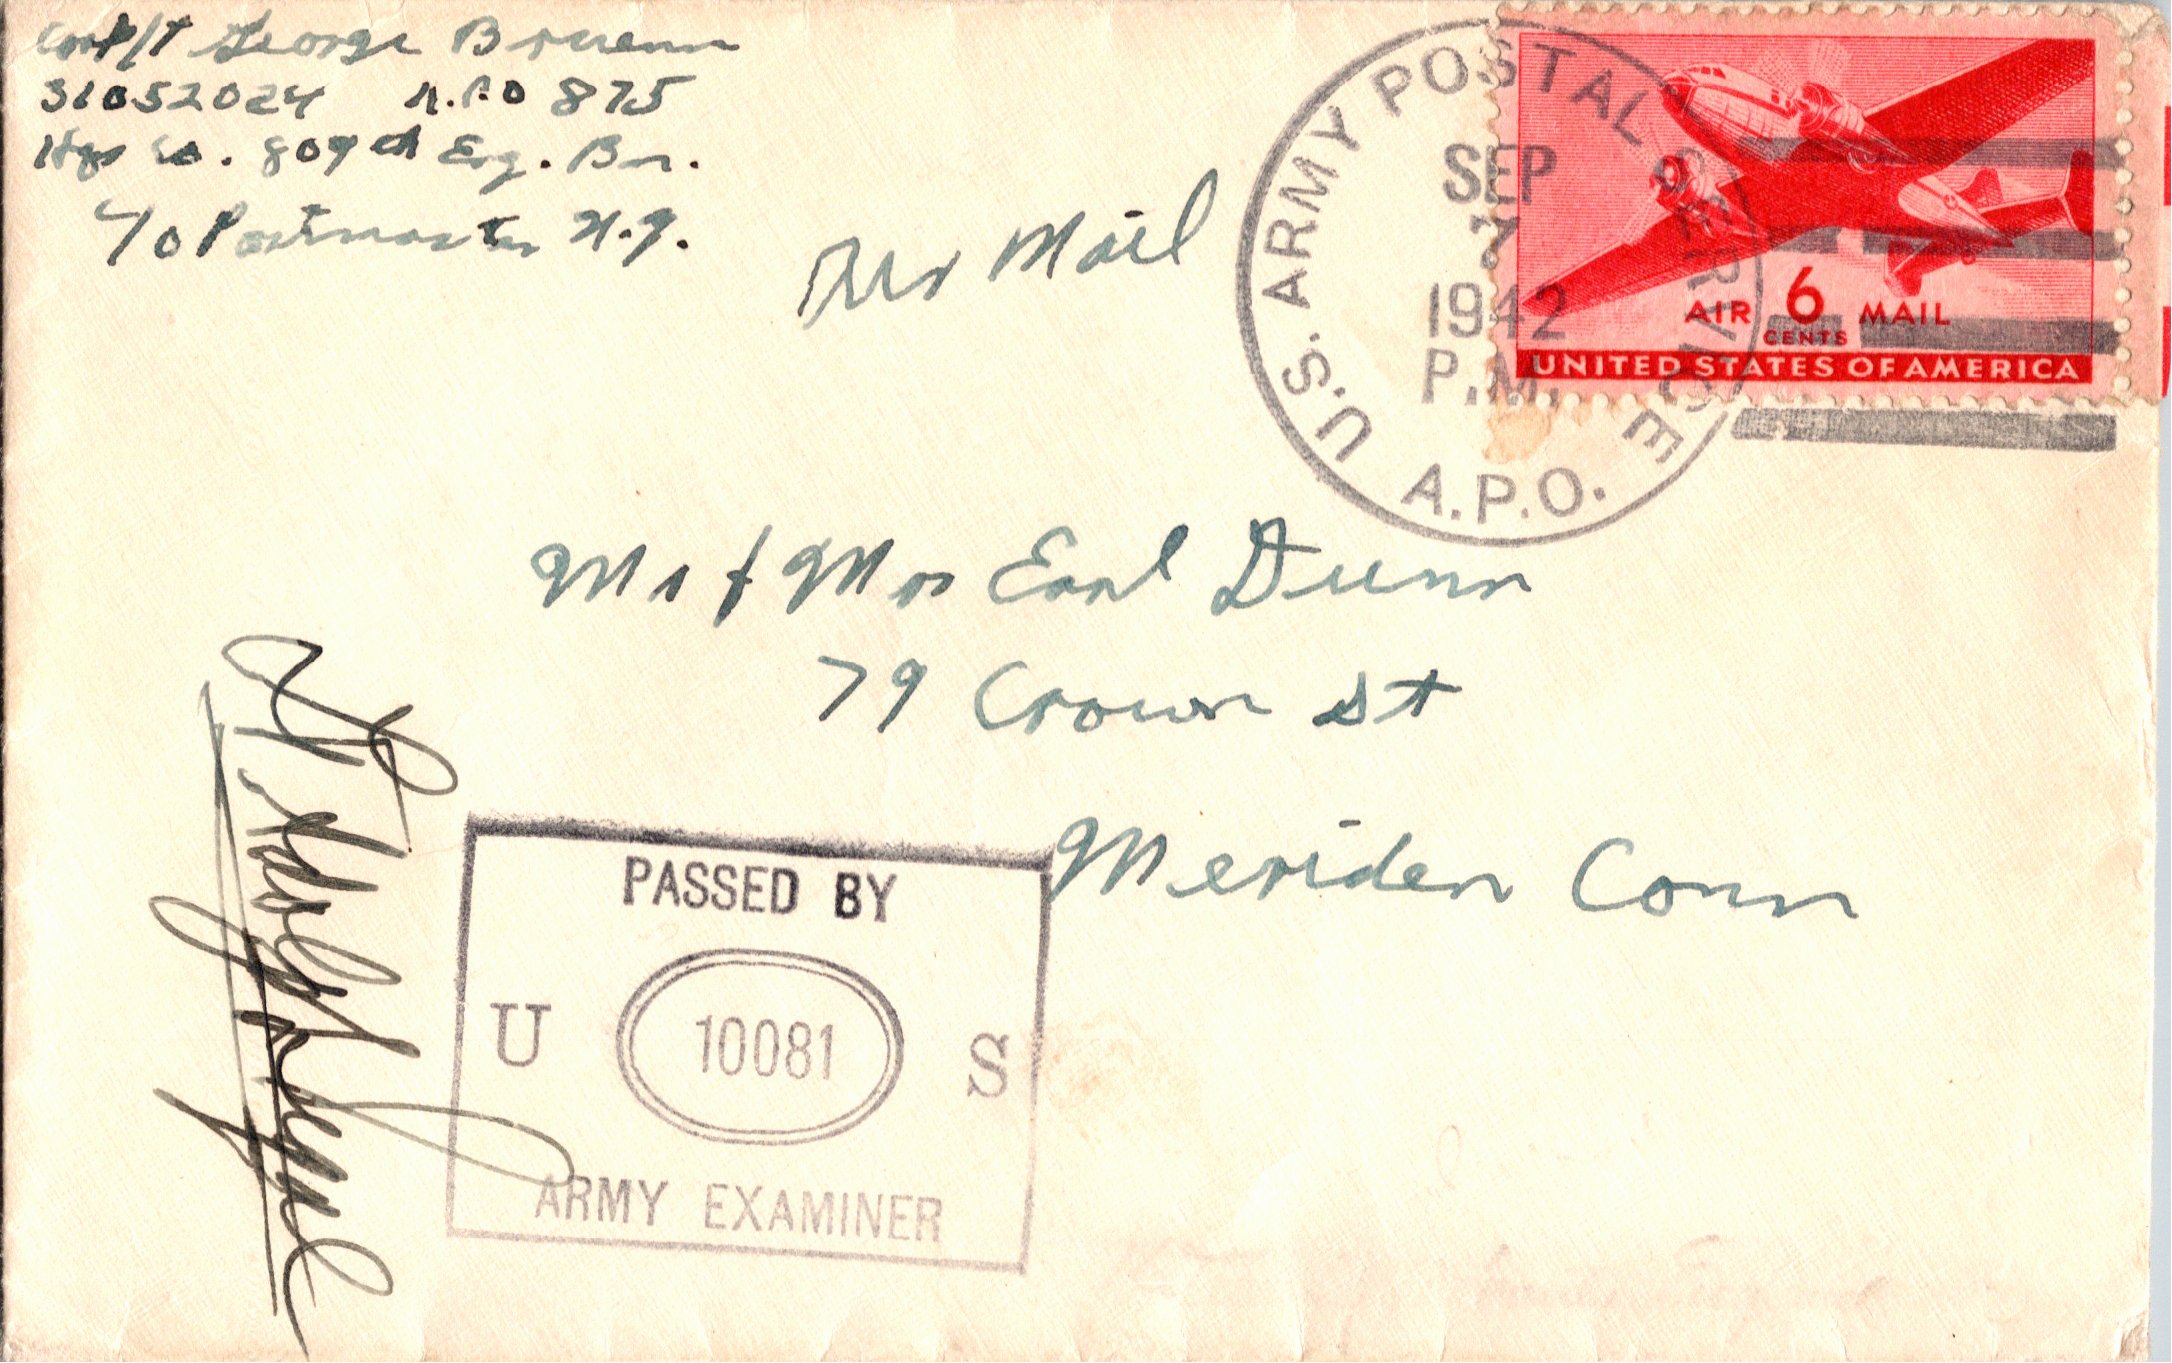 Corp/T George
31052024 A.P.O 875
Hqs Co. 809th Eng. Bn.
c/o Postmaster N.Y.
Air Mail
U.S. ARMY POSTAL SERVICE
SEP
7
1942
P.M.
A.P.O.
AIR 6 MAIL
CENTS
UNITED STATES OF AMERICA
Mr & Mrs Earl Dunn
79 Crown St
Meriden Conn
PASSED BY
U 10081 S
ARMY EXAMINER